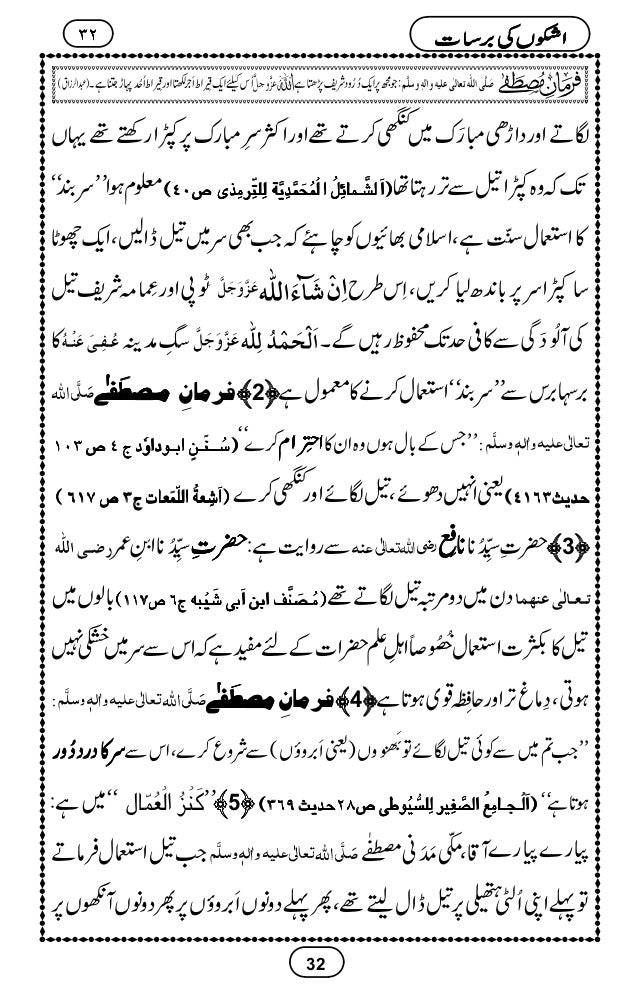 اشکوں کی برسات
۳۲
فرمانِ مصطفٰے صلَّی اللہ تعالٰی علیہ واٰلہٖ وسلَّم : جو مجھ پر ایک دُرود شریف پڑھتا ہے اللہ عَزَّوَجَلَّ اُس کیلئے ایک قیراط اَجر لکھتا اور قیراط اُحُد پہاڑ جتنا ہے۔ (عبدالرزاق)
لگاتے اور داڑھی مبارَک میں کنگھی کرتے تھے اور اکثر سرِ مبارک پر کپڑا رکھتے تھے یہاں
تک کہ وہ کپڑا تیل سے تر رہتا تھا (اَلشَّمائِلُ الْمُحَمَّدِیَّة لِلتِّرمِذی ص۴۰) معلوم ہوا ’’سر بند‘‘
کا استعمال سنّت ہے، اسلامی بھائیوں کو چاہئے کہ جب بھی سر میں تیل ڈالیں، ایک چھوٹا
سا کپڑا سر پر باندھ لیا کریں، اِس طرح اِنْ شَآءَ اللّٰه عَزَّوَجَلَّ ٹوپی اور عِمامہ شریف تیل
کی آلُودَگی سے کافی حد تک محفوظ رہیں گے۔ اَلْحَمْدُ لِلّٰه عَزَّوَجَلَّ سگِ مدینہ عُفِیَ عَنْهُ کا
برسہا برس سے ’’سر بند‘‘ استعمال کرنے کا معمول ہے ﴿2﴾ فرمانِ مصطَفٰے صَلَّی اللّٰه
تعالٰی علیہ واٰلہٖ وسلَّم : ’’جس کے بال ہوں وہ ان کا احتِرام کرے‘‘ (سُنَنِ ابوداوٗد ج ٤ ص ۱۰۳
حدیث ٤١٦٣) یعنی انہیں دھوئے، تیل لگائے اور کنگھی کرے (اَشِعةُ اللَّمَعات ج۳ ص ٦١٧)
﴿3﴾ حضرتِ سیِّدُنا نافِع رضی اللہ تعالٰی عنہ سے روایت ہے: حضرتِ سیِّدُنا ابنِ عمر رضی اللّٰه
تعالٰی عنهما دن میں دو مرتبہ تیل لگاتے تھے (مُصَنَّف ابن اَبی شَیْبه ج٦ ص۱۱۷) بالوں میں
تیل کا بکثرت استعمال خُصُوصاً اہلِ علم حضرات کے لئے مفید ہے کہ اس سے سر میں خشکی نہیں
ہوتی، دِماغ تر اور حافِظہ قوی ہوتا ہے ﴿4﴾ فرمانِ مصطَفٰے صَلَّی اللّٰه تعالٰی علیہ واٰلہٖ وسلَّم :
’’جب تم میں سے کوئی تیل لگائے تو بَھنووں (یعنی اَبروؤں) سے شروع کرے، اس سے سر کا درد دُور
ہوتا ہے‘‘ (اَلْجامِعُ الصَّغِیر لِلسُّیُوطی ص۲۸ حدیث ۳٦۹) ﴿5﴾ ’’کَنْزُ الْعُمّال‘‘ میں ہے:
پیارے پیارے آقا، مکّی مَدَنی مصطَفٰے صَلَّی اللّٰه تعالٰی علیہ واٰلہٖ وسلَّم جب تیل استعمال فرماتے
تو پہلے اپنی اُلٹی ہتھیلی پر تیل ڈال لیتے تھے، پھر پہلے دونوں اَبروؤں پر پھر دونوں آنکھوں پر
32